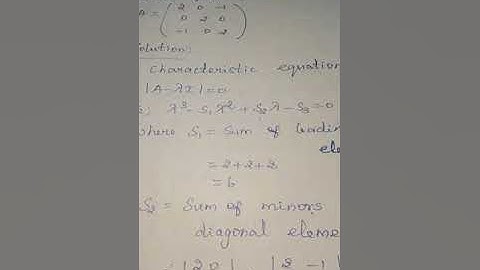 A = ( 2 0 -1
0 2 0
-1 0 2 )
Solution:
characteristic equation
|A-λI|=0
λ³-S₁λ²+S₂λ-S₃=0
where S₁ = Sum of leadin
ele
= 2+2+2
= 6
S₂ = Sum of minors
diagonal eleme
|2 0| |2 -1|